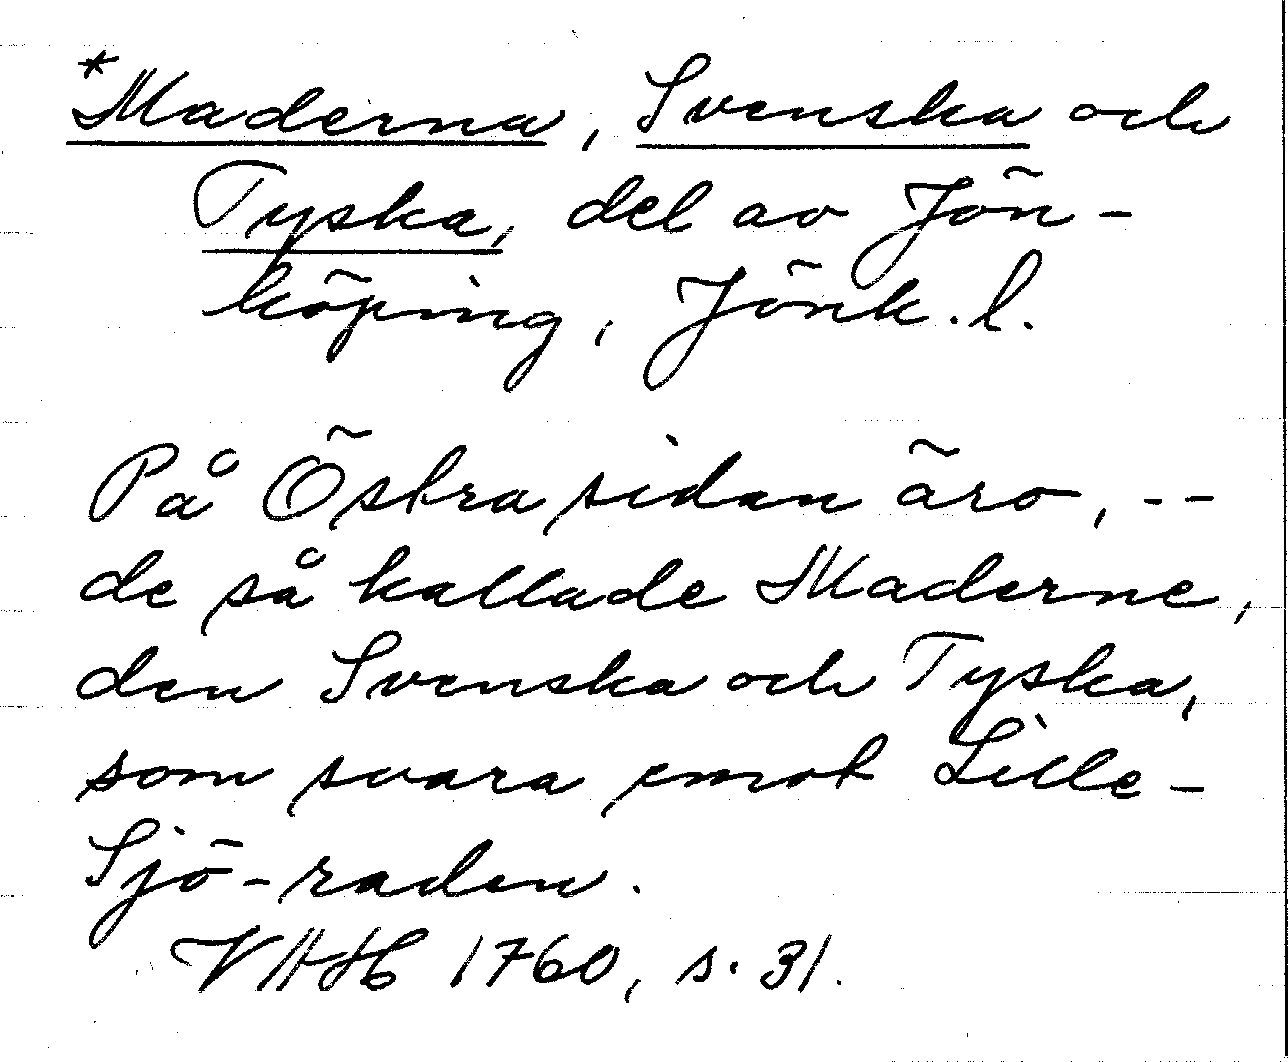 *Maderna, Svenska och
Tyska, del av Jön-
köping, Jönk. l.
På Östra sidan äro, --
de så kallade Maderne,
den Svenska och Tyska,
som svara emot Lille-
Sjö-raden.
VHAH 1760, s. 31.